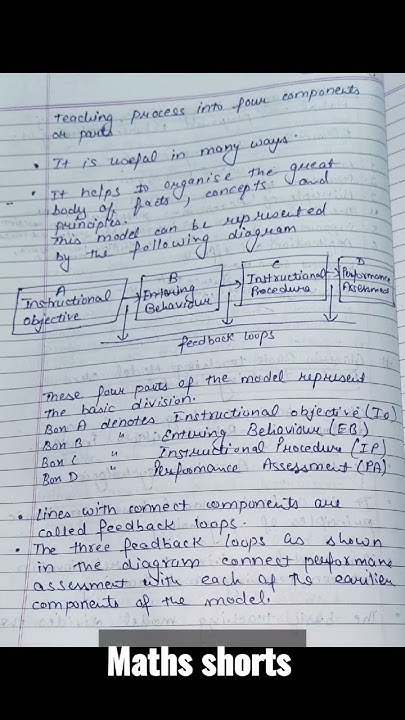 teaching process into four components
or parts
• It is useful in many ways.
• It helps to organise the great
body of facts, concepts and
principles.
This model can be represented
by the following diagram
A
Instructional
Objective
B
Entering
Behaviour
C
Instructional
Procedure
D
Performance
Assessment
feedback loops
These four parts of the model represent
the basic division.
Box A denotes Instructional objective (IO)
Box B " Entering Behaviour (EB)
Box C " Instructional Procedure (IP)
Box D " Performance Assessment (PA)
• Lines with connect components are
called feedback loops.
• The three feedback loops as shown
in the diagram connect performance
assessment with each of the earilier
components of the model.
Maths shorts